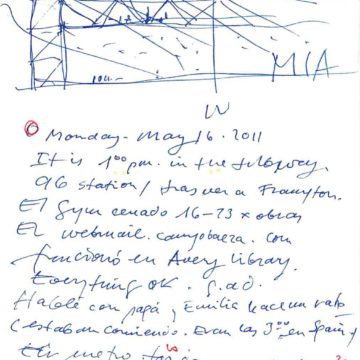 MIA
Monday - May 16. 2011
It is 1ºº pm. in the subway.
96 station / tras ver a Frampton.
El Gym cerrado 16-23 x obras
El webmail. campobaeza. com
funcionó en Avery Library.
Everything OK. G.a.d.
Hablé con papá y Emilia hace un rato
(estaban comiendo. Eran las 3ºº en Spain)